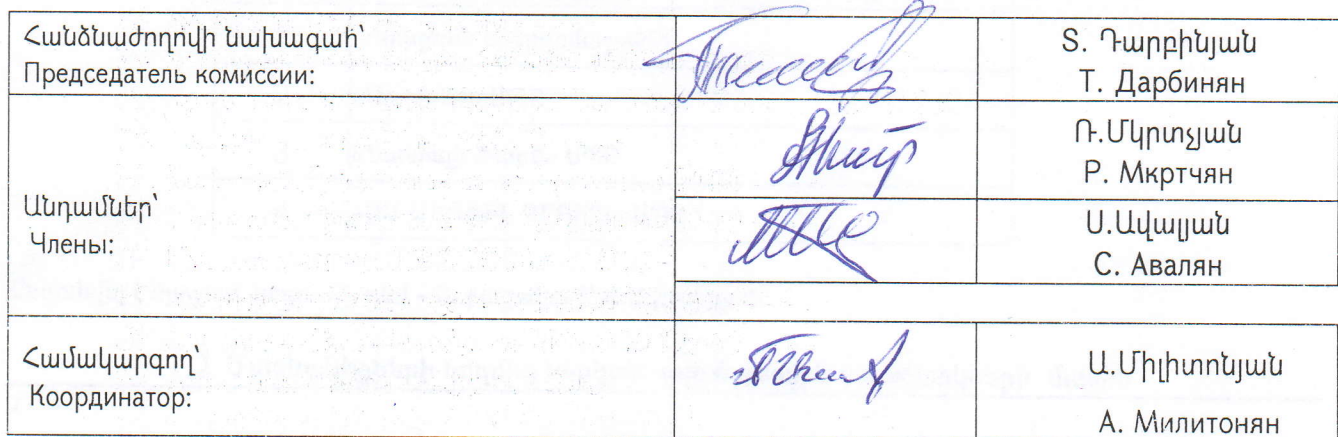 Հանձնաժողովի նախագահ՝
Председатель комиссии:
Տ. Դարբինյան
Т. Дарбинян
Անդամներ՝
Члены:
Ռ.Մկրտչյան
Р. Мкртчян
Ս.Ավալյան
С. Авалян
Համակարգող՝
Координатор:
Ա.Միլիտոնյան
А. Милитонян